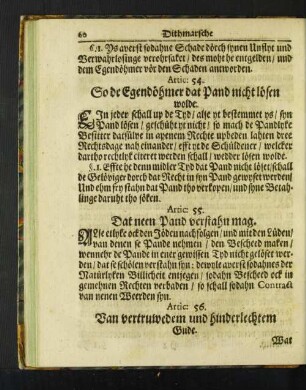 60 Dithmarsche
§.1. Ys averst sodahne Schade dörch synen Unflyt und
Verwahrlosinge veröhrsaket / des moht he entgelden / und
dem Egendöhmer vör den Schaden antworden.
Artic: 54.
So de Egendöhmer dat Pand nicht lösen
wolde.
EIn jeder schall up de Tyd / alse yt bestemmet ys / syn
Pand lösen / geschüht yt nicht / so mach de Pandlyke
Besitter darsülve in apenem Rechte upbeden lahten dree
Rechtsdage nah einander / efft yt de Schüldener / welcker
dartho rechtlyk citeret werden schall / wedder lösen wolde.
§.1. Effte he denn midler Tyd dat Pand nicht löset / schall
de Gelöviger dorch dat Recht in syn Pand gewyset werden /
Und ehm fry stahn dat Pand tho verkopen / und syne Betah-
linge daruht tho söken.
Artic: 55.
Dat neen Pand verstahn mag.
ALse etlyke ock den Jöden nachfolgen / und mit den Lüden /
van denen se Pande nehmen / den Bescheed maken /
wennehr de Pande in ener gewissen Tyd nicht gelöset wer-
den / dat se schölen verstahn syn: dewyle averst sodahnes der
Natürlyken Billicheit entjegen / sodahn Bescheed ock in
gemehnen Rechten verbaden / so schall sodahn Contract
van neenen Weerden syn.
Artic: 56.
Van vertruwedem und hinderlechtem
Gude.
Wat